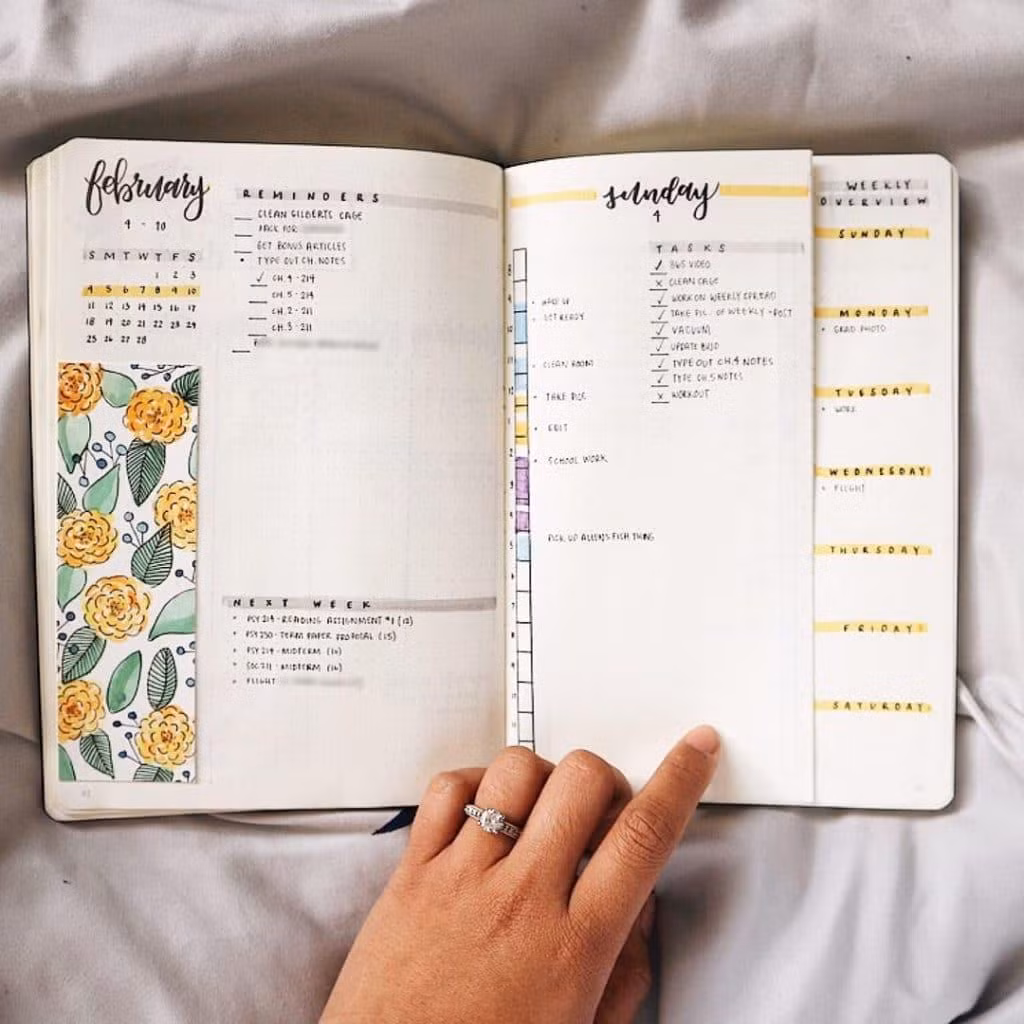 february
4 - 10
S M T W T F S
1 2 3
4 5 6 7 8 9 10
11 12 13 14 15 16 17
18 19 20 21 22 23 24
25 26 27 28
REMINDERS
CLEAN GILBERTS CAGE
PACK FOR
GET BONUS ARTICLES
• TYPE OUT CH. NOTES
✓ CH. 4 - 214
CH. 5 - 214
CH. 2 - 211
CH. 3 - 211
NEXT WEEK
• PSY 214 - READING ASSIGNMENT #1 (12)
• PSY 230 - TERM PAPER PROPOSAL (15)
• PSY 214 - MIDTERM
• SOC 211 - MIDTERM
• FLIGHT
sunday
4
8
9
10
11
12
1
2
3
4
5
6
7
8
9
10
11
• WAKE UP
• GET READY
• CLEAN ROOM
• TAKE PICS
• EDIT
• SCHOOL WORK
PICK UP ALLEN'S FISH THING
TASKS
✓ 365 VIDEO
x CLEAN CAGE
✓ WORK ON WEEKLY SPREAD
✓ TAKE PIC. OF WEEKLY + POST
✓ VACUUM
✓ UPDATE BUJO
✓ TYPE OUT CH.4 NOTES
✓ TYPE CH.5 NOTES
x WORKOUT
WEEKLY
OVERVIEW
SUNDAY
MONDAY
• GRAD PHOTO
TUESDAY
• WORK
WEDNESDAY
• FLIGHT
THURSDAY
FRIDAY
SATURDAY